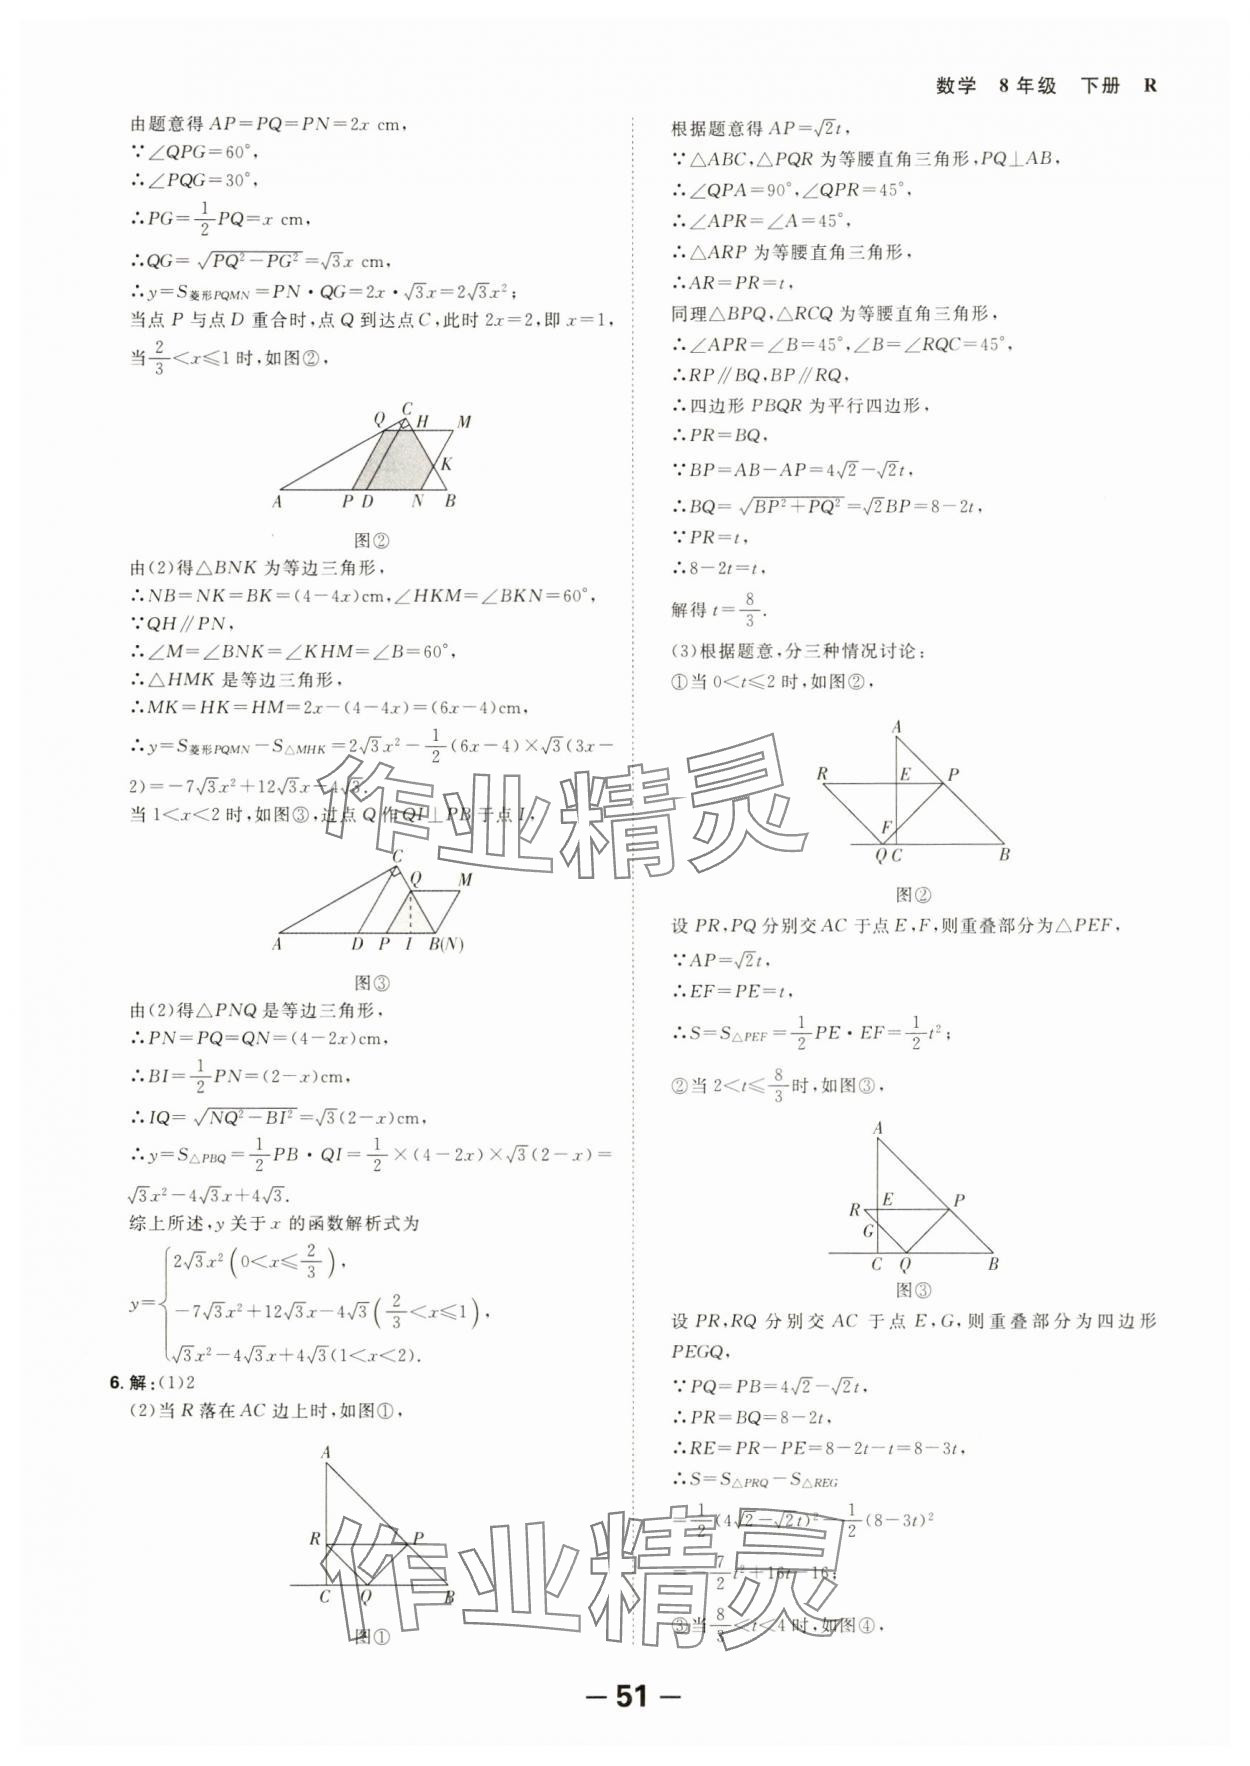 数学 8年级 下册 R
由题意得 AP=PQ=PN=2x cm,
∵∠QPG=60°,
∴∠PQG=30°,
∴PG=1/2PQ=x cm,
∴QG=√(PQ²-PG²)=√3x cm,
∴y=S菱形PQMN=PN·QG=2x·√3x=2√3x²;
当点 P 与点 D 重合时,点 Q 到达点 C,此时 2x=2,即 x=1,
当2/3<x≤1时,如图②,
C
Q
H
M
K
A
P
D
N
B
图②
由(2)得△BNK 为等边三角形,
∴NB=NK=BK=(4-4x)cm,∠HKM=∠BKN=60°,
∵QH∥PN,
∴∠M=∠BNK=∠KHM=∠B=60°,
∴△HMK 是等边三角形,
∴MK=HK=HM=2x-(4-4x)=(6x-4)cm,
∴y=S菱形PQMN-S△MHK=2√3x²-1/2(6x-4)×√3(3x-
2)=-7√3x²+12√3x-4√3.
当 1<x<2 时,如图③,过点 Q 作 QI⊥PB 于点 I,
C
Q
M
A
D
P
I
B(N)
图③
由(2)得△PNQ 是等边三角形,
∴PN=PQ=QN=(4-2x)cm,
∴BI=1/2PN=(2-x)cm,
∴IQ=√(NQ²-BI²)=√3(2-x)cm,
∴y=S△PBQ=1/2PB·QI=1/2×(4-2x)×√3(2-x)=
√3x²-4√3x+4√3.
综上所述,y 关于 x 的函数解析式为
2√3x²(0<x≤2/3),
y={-7√3x²+12√3x-4√3(2/3<x≤1),
√3x²-4√3x+4√3(1<x<2).
6.解:(1)2
(2)当 R 落在 AC 边上时,如图①,
A
R
P
C
Q
B
图①
根据题意得 AP=√2t,
∵△ABC,△PQR 为等腰直角三角形,PQ⊥AB,
∴∠QPA=90°,∠QPR=45°,
∴∠APR=∠A=45°,
∴△ARP 为等腰直角三角形,
∴AR=PR=t,
同理△BPQ,△RCQ 为等腰直角三角形,
∴∠APR=∠B=45°,∠B=∠RQC=45°,
∴RP∥BQ,BP∥RQ,
∴四边形 PBQR 为平行四边形,
∴PR=BQ,
∵BP=AB-AP=4√2-√2t,
∴BQ=√(BP²+PQ²)=√2BP=8-2t,
∵PR=t,
∴8-2t=t,
解得 t=8/3.
(3)根据题意,分三种情况讨论:
①当 0<t≤2 时,如图②,
A
R
E
P
F
Q
C
B
图②
设 PR,PQ 分别交 AC 于点 E,F,则重叠部分为△PEF,
∵AP=√2t,
∴EF=PE=t,
∴S=S△PEF=1/2PE·EF=1/2t²;
②当 2<t≤8/3时,如图③,
A
R
E
P
G
C
Q
B
图③
设 PR,RQ 分别交 AC 于点 E,G,则重叠部分为四边形
PEGQ,
∵PQ=PB=4√2-√2t,
∴PR=BQ=8-2t,
∴RE=PR-PE=8-2t-t=8-3t,
∴S=S△PRQ-S△REG
=1/2(4√2-√2t)²-1/2(8-3t)²
=-7/2t²+16t-16;
③当8/3<t<4时,如图④,
作业精灵
作业精灵
— 51 —